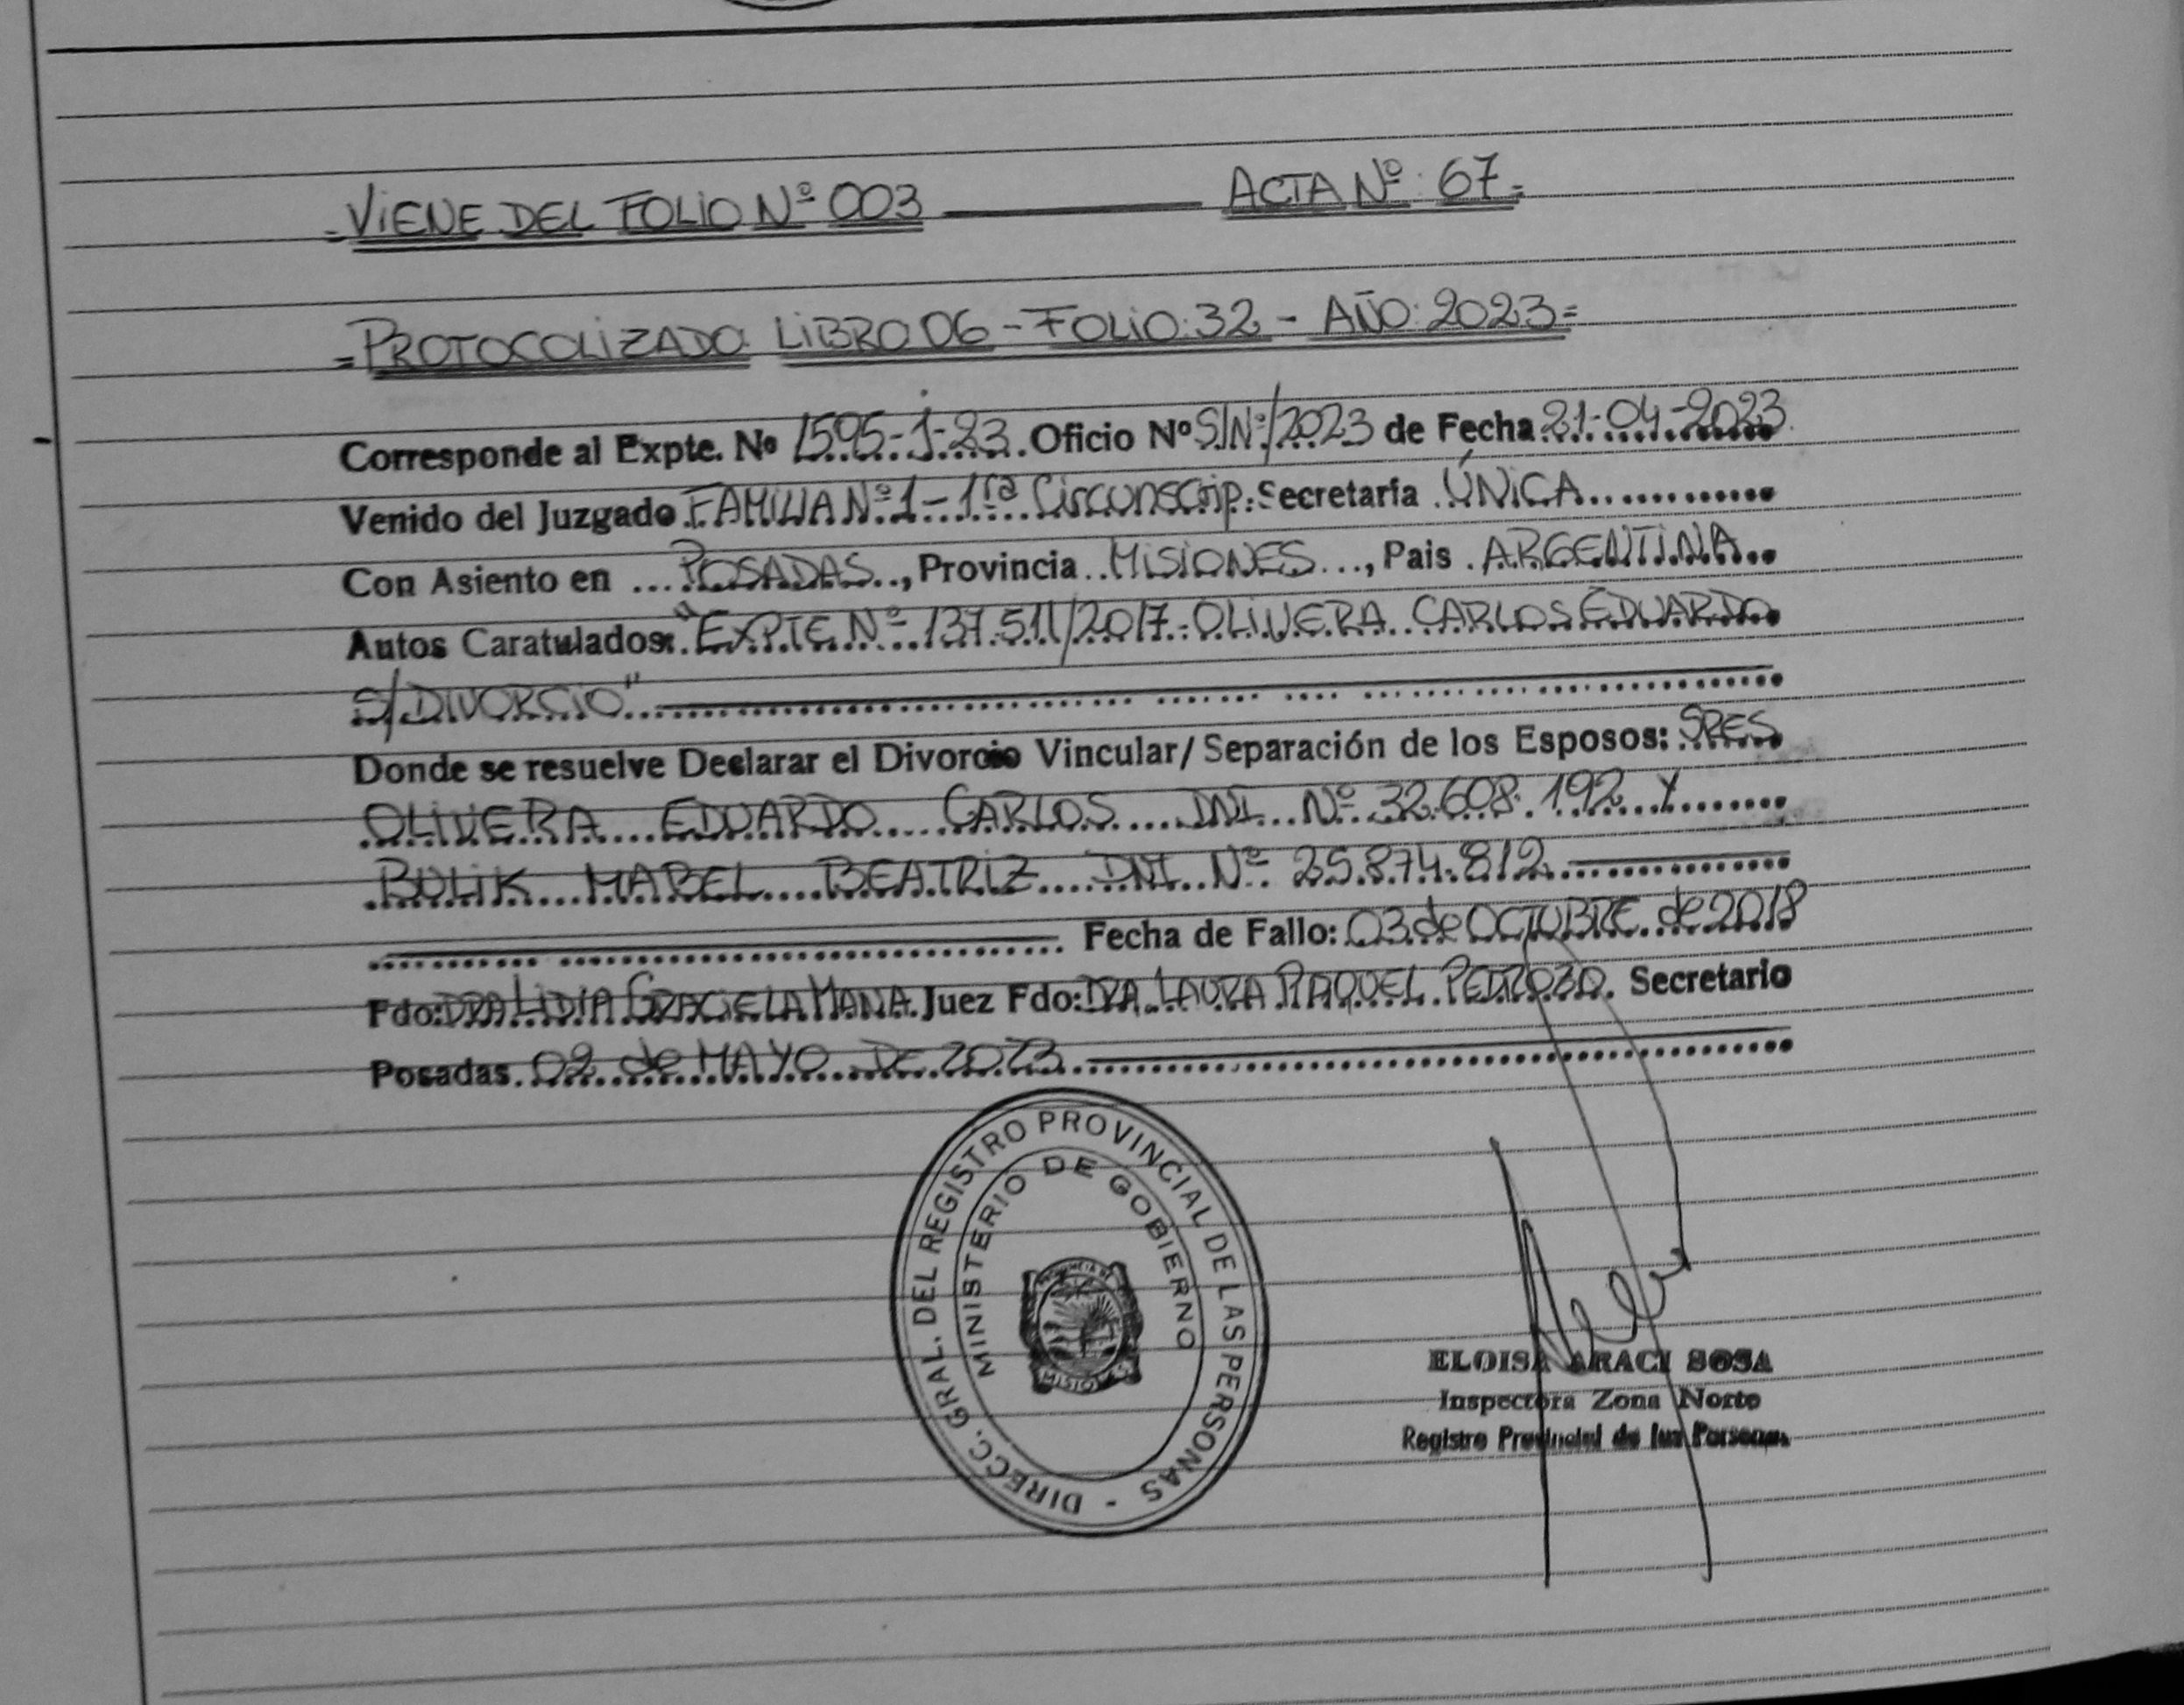 =VIENE DEL FOLIO Nº 003 ACTA Nº: 67=
=PROTOCOLIZADO: LIBRO 06 - FOLIO: 32 - AÑO: 2023=
Corresponde al Expte. Nº 1595-1-23. Oficio Nº S/Nº/2023 de Fecha 21-04-2023.
Venido del Juzgado FAMILIA Nº 1 - 1ra Circunscrip. Secretaría ÚNICA
Con Asiento en POSADAS, Provincia MISIONES, Pais ARGENTINA
Autos Caratulados: "EXPTE Nº 137.511/2017- OLIVERA CARLOS EDUARDO
S/ DIVORCIO"
Donde se resuelve Declarar el Divorcio Vincular/ Separación de los Esposos: SRES
OLIVERA EDUARDO CARLOS DNI Nº 32.608.192 Y
BULIK MABEL BEATRIZ DNI Nº 25.874.812
Fecha de Fallo: 03 de OCTUBRE de 2018
Fdo: DRA LIDIA GRACIELA Juez Fdo: DRA. LAURA RAQUEL PEDROZO. Secretario
Posadas. 02 de MAYO DE 2023
DIRECC. GRAL. DEL REGISTRO PROVINCIAL DE LAS PERSONAS -
MINISTERIO DE GOBIERNO
PROVINCIA DE
MISIONES
ELOISA ARACI SOSA
Inspectora Zona Norte
Registro Provincial de las Personas